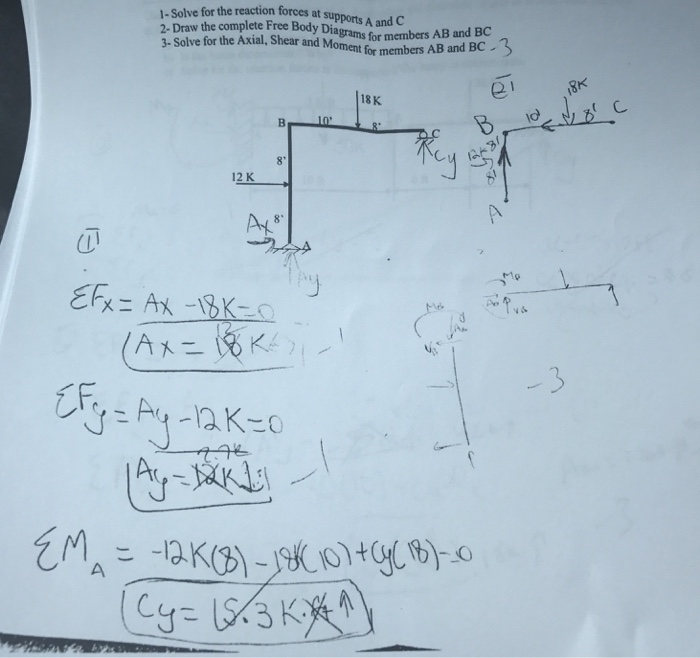 1- Solve for the reaction forces at supports A and C
2- Draw the complete Free Body Diagrams for members AB and BC
3- Solve for the Axial, Shear and Moment for members AB and BC - 3
18 K
B 10' 8' C
8'
12 K
Ax 8'
A
Ay
Cy
18K
B 10' 8' C
8'
8'
A
①
ΣFx = Ax - 18K = 0
Ax = K - 1
ΣFy = Ay - 12K = 0
Ay = 12K - 1
- 3
ΣM_A = -12K(8) - 18K(10) + Cy(18) = 0
Cy = 15.3 K ↑